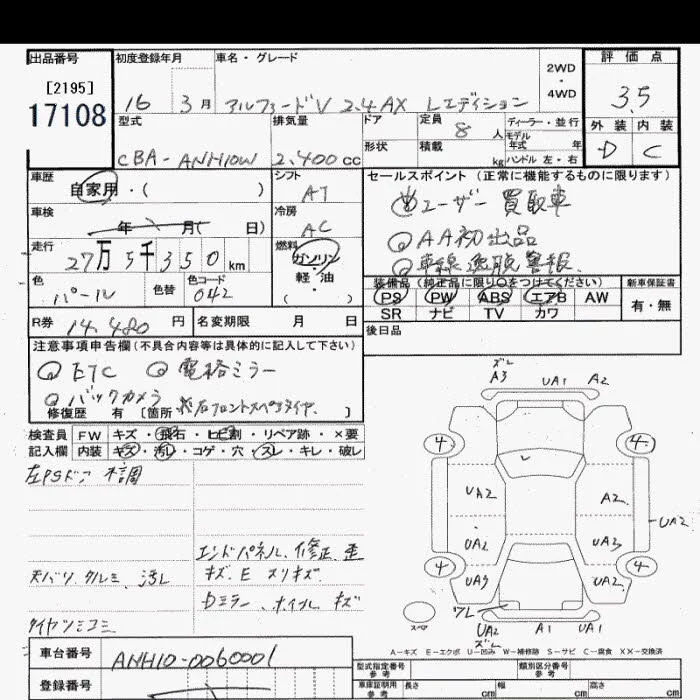 出品番号 初度登録年月 車名・グレード 2WD・4WD 評価点
[2195]
17108
16 3月 アルファードV 2.4 AX Lエディション 3.5
型式 排気量 ドア 定員 8人 ディーラー・並行 外装 内装
モデル年式 年
形状 積載 kg ハンドル 左・右
CBA-ANH10W 2.400cc D C
車歴 自家用・( ) シフト AT セールスポイント (正常に機能するものに限ります)
ユーザー買取車
車検 年 月( 日) 冷房 AC
AA初出品
走行 27万5千350km 燃料 ガソリン・軽・油・( )
車線逸脱警報
装備品 (純正品に限り○をつけてください) 新車保証書
色 パール 色替 色コード 042
PS PW ABS エアB AW 有・無
SR ナビ TV カワ
R券 14,480円 名変期限 月 日
後日品
注意事項申告欄 (不具合内容等は具体的に記入して下さい)
ETC 電格ミラー
バックカメラ
修復歴 有 [箇所 ]
検査員 FW キズ・飛石・ヒビ割・リペア跡・×要
記入欄 内装 キズ・汚れ・コゲ・穴・スレ・キレ・破レ
左PSドア 不調
エンドパネル、修正、歪
天バリ、クルミ、汚レ
キズ.E スリキズ
Dミラー、ホイル キズ
タイヤツミコミ
車台番号 ANH10-0060001
登録番号
ズレ
A3 UA1 A2
4 4
UA2 A2
UA2
UA2 UA3
4 4
UA3 UA2
スペア
ワレ
UA2 A1 UA1
ズレ
A-キズ E-エクボ U-凹み W-補修跡 S-サビ C-腐食 XX-交換済
型式指定番号 類別区分番号
参考 参考
車庫証明用 長さ 幅 高さ
参考 cm cm cm